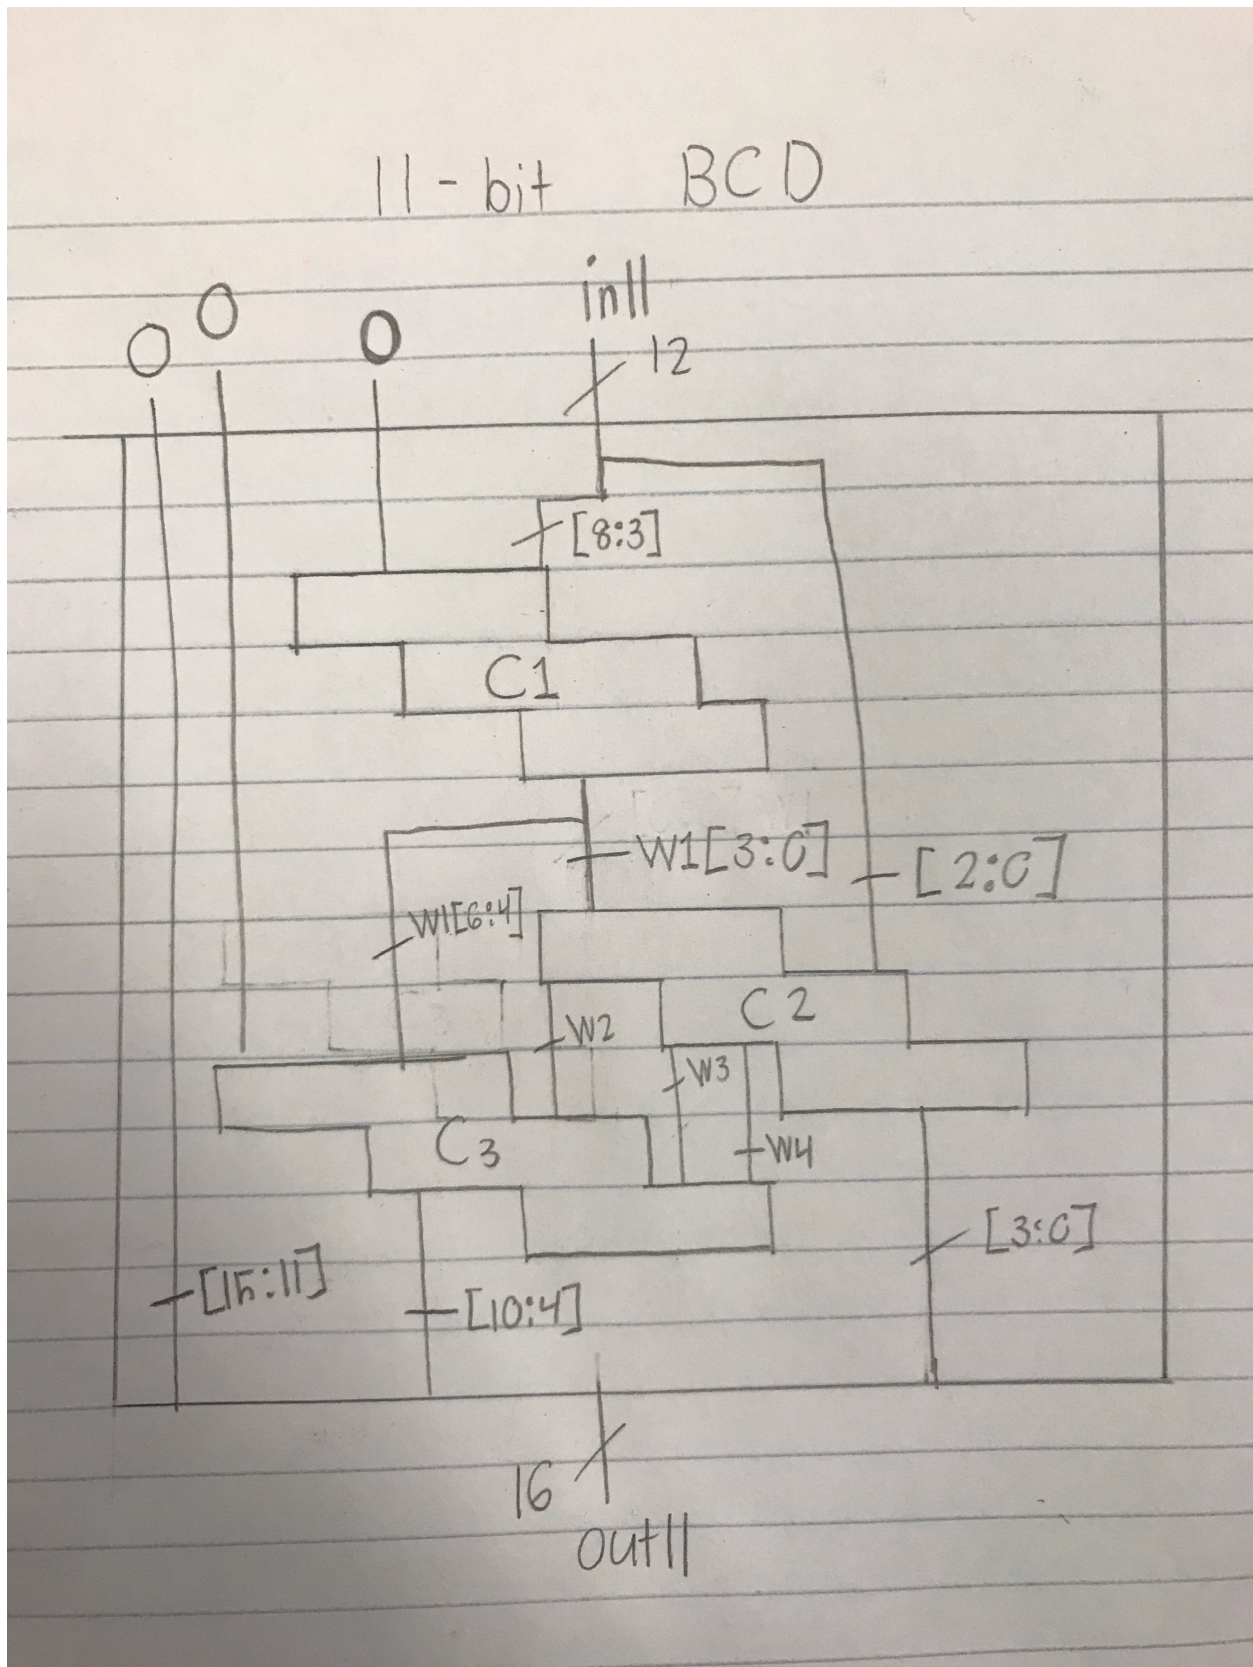 11-bit BCD
in11
0
0
0
12
[8:3]
C1
W1[3:0]
[2:0]
W1[6:4]
C2
W2
W3
C3
W4
[3:0]
[15:11]
[10:4]
16
out11